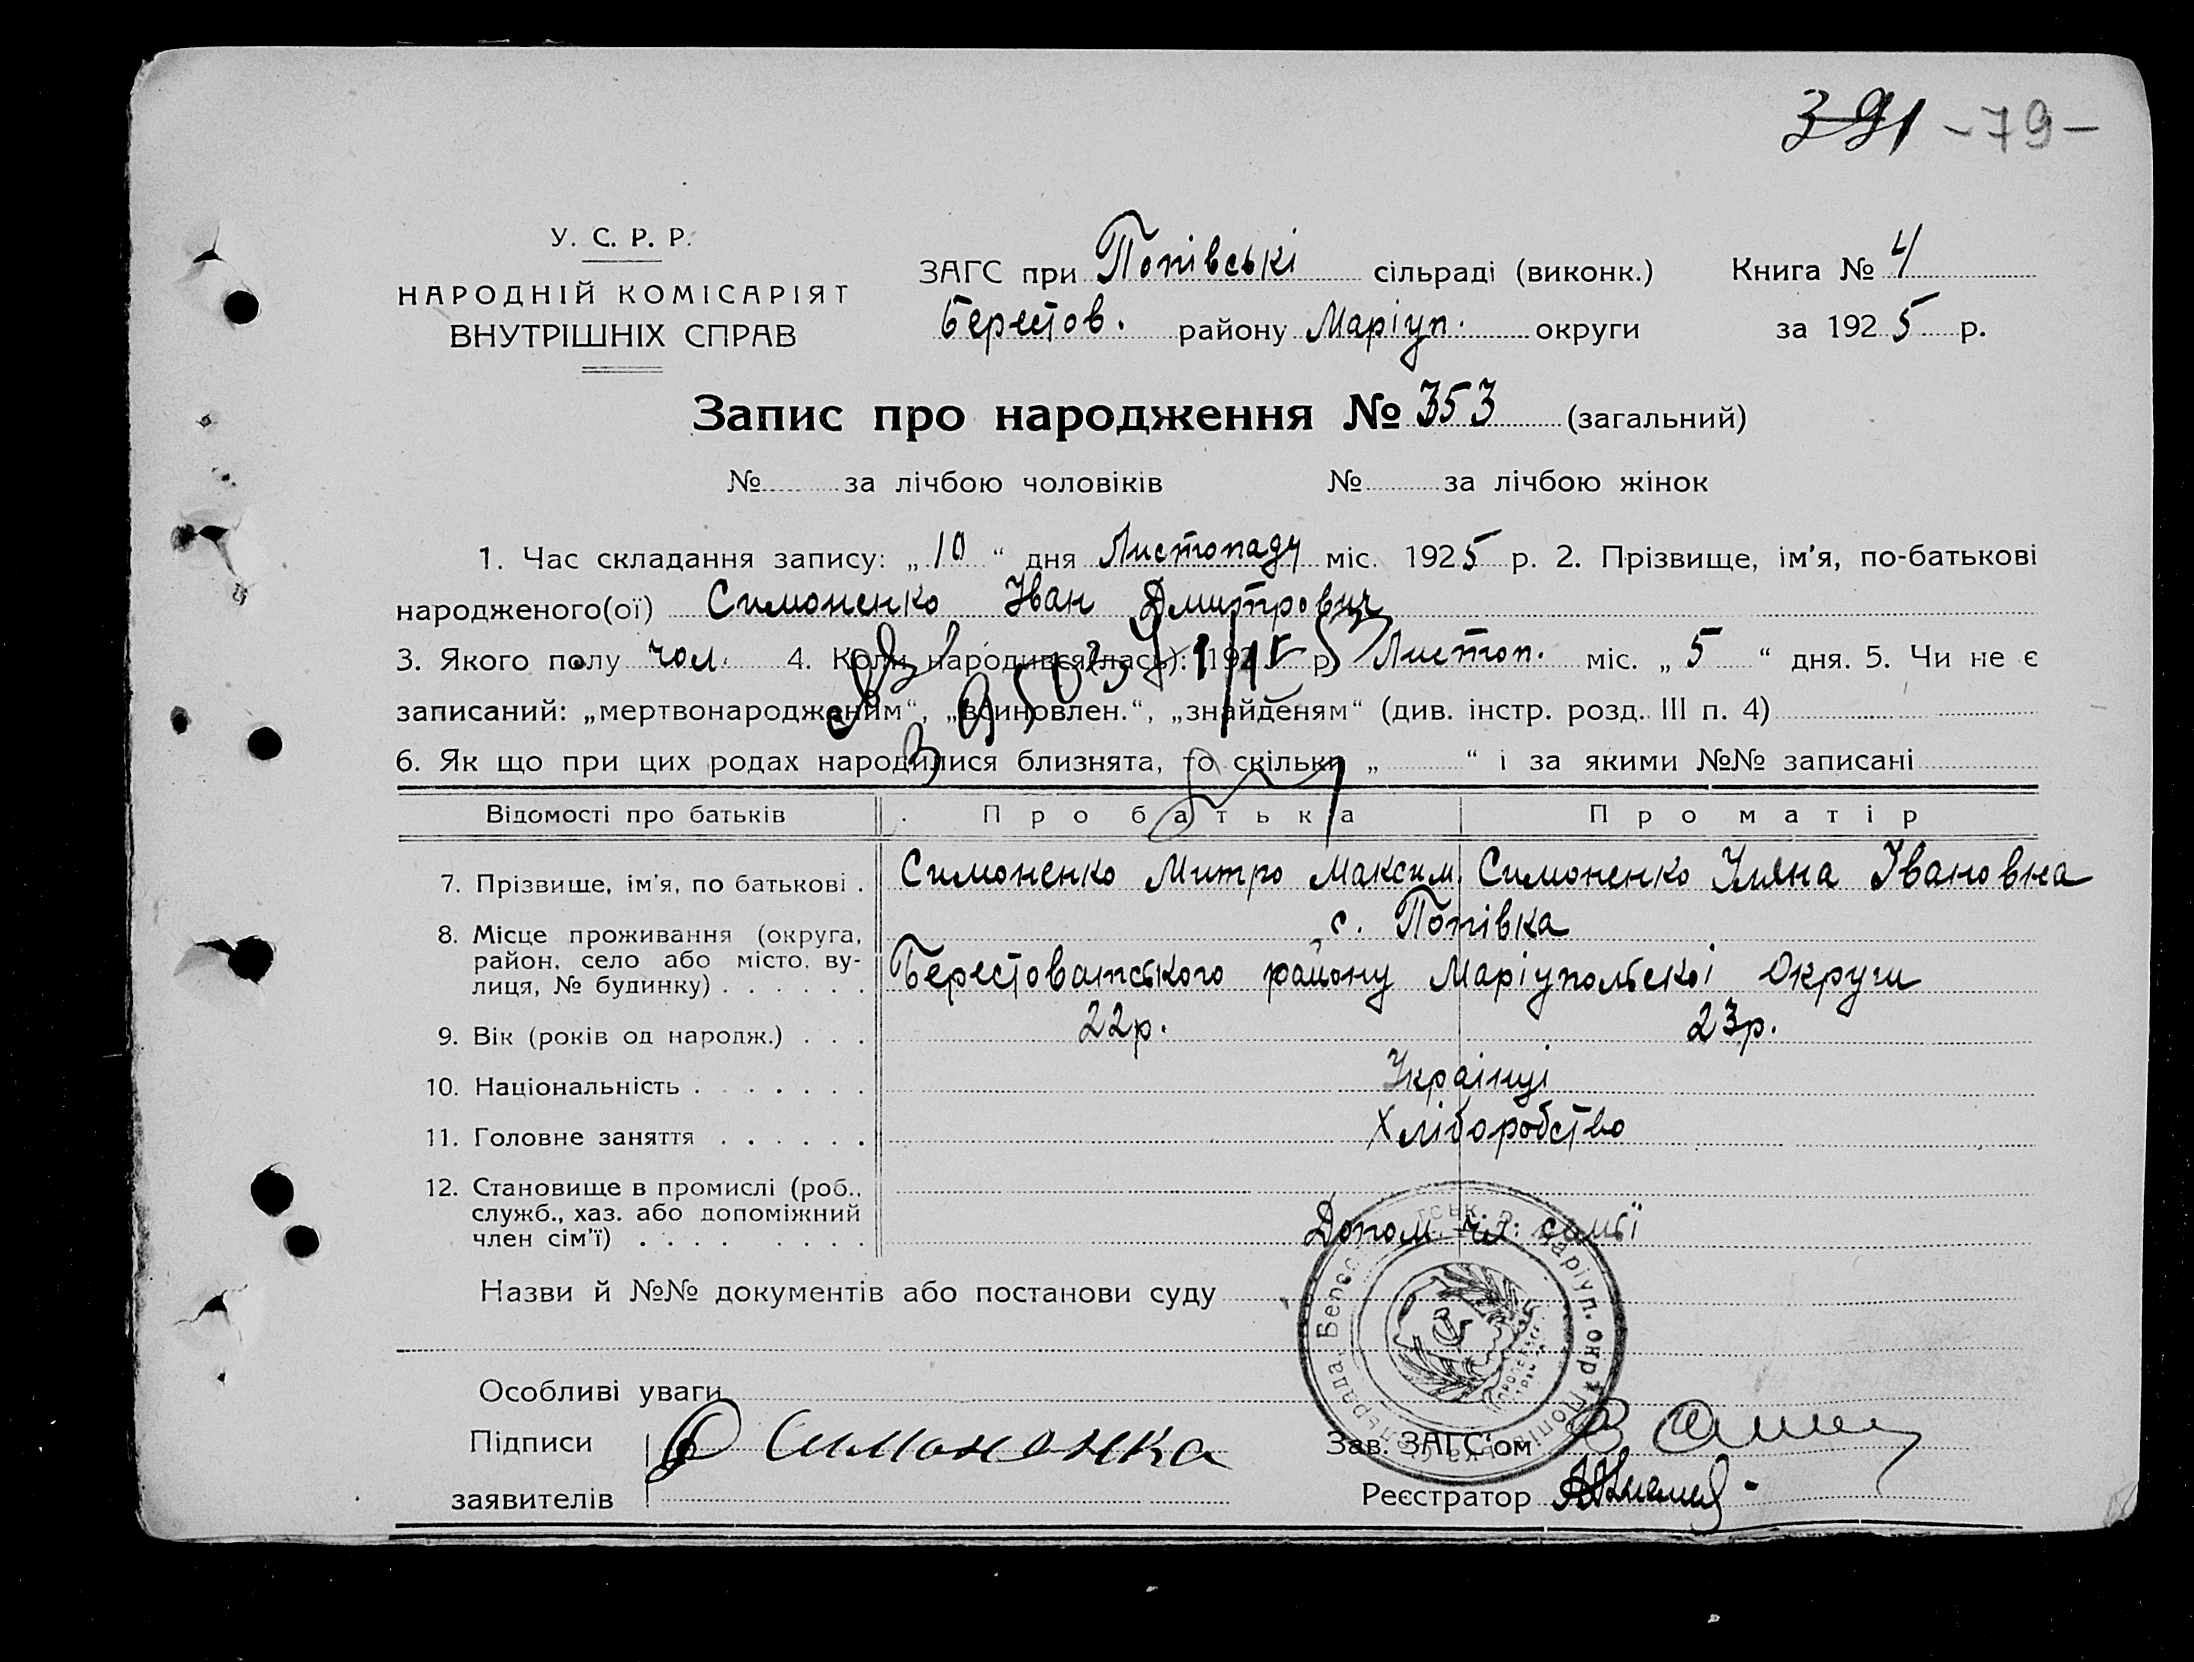 391 -79-
У. С. Р. Р.
НАРОДНІЙ КОМІСАРІЯТ
ВНУТРІШНІХ СПРАВ
ЗАГС при Попівські сільраді (виконк.) Книга № 4
Берестов. району Маріуп. округи за 1925 р.
Запис про народження № 353 (загальний)
№ за лічбою чоловіків № за лічбою жінок
1. Час складання запису: „10“ дня Листопаду міс. 1925 р. 2. Прізвище, ім'я, по-батькові
народженого(ої) Симоненко Іван Дмитрович
3. Якого полу чол. 4. Коли народився(лась): 1925 р. Листоп. міс. „5“ дня. 5. Чи не є
записаний: „мертвонародженим“, „всиновлен.“, „знайденям“ (див. інстр. розд. III п. 4)
6. Як що при цих родах народилися близнята, то скільки „ “ і за якими №№ записані
Відомості про батьків Про батька Про матір
7. Прізвище, ім'я, по батькові . Симоненко Митро Максим. Симоненко Уляна Івановна
8. Місце проживання (округа, с. Попівка
район, село або місто, ву-
лиця, № будинку) . . . . . . Берестованського району Маріупольскоі Округи
9. Вік (років од народж.) . . . 22р. 23р.
10. Національність . . . . . . . Украінці
11. Головне заняття . . . . . . Хліборобство
12. Становище в промислі (роб.,
служб., хаз. або допоміжний
член сім'ї) . . . . . . . . Допом. чл. сімьї
Назви й №№ документів або постанови суду
Особливі уваги
Підписи Симоненка Зав. ЗАГС'ом
заявителів Реєстратор